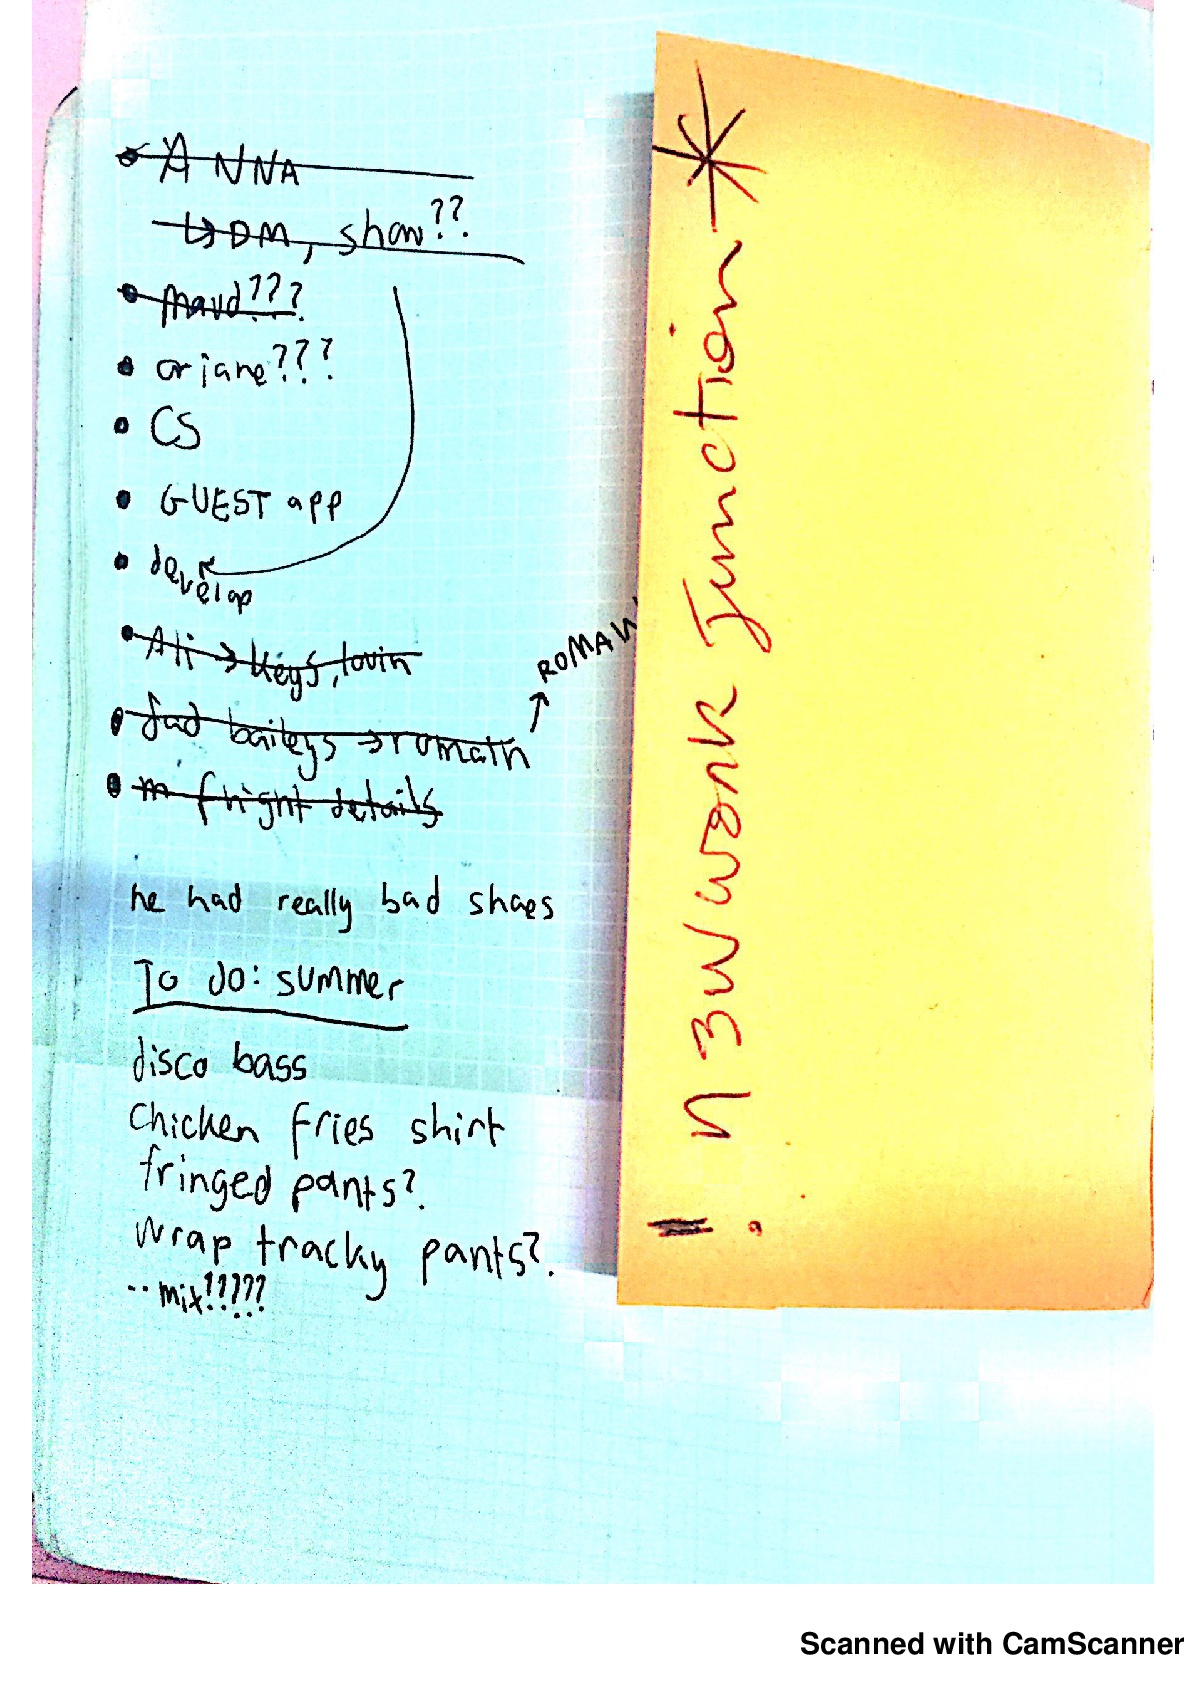 ANNA
↳ DM, show??
maud???
orjane???
CS
GUEST app
develop
Ali → keys, lovin
→ romain
ROMAN
details
he had really bad shoes
To do: summer
disco bass
Chicken fries shirt
fringed pants?
Wrap tracky pants?
.. mix!!???
n3wwork Junction *
Scanned with CamScanner